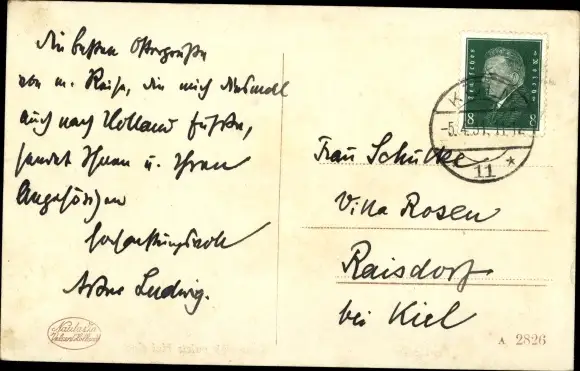 Die besten Ostergrüße
von m. Reise, die mich diesmal
auch nach Holland führte,
sendet Ihnen u. Ihren
Angehörigen
hochachtungsvoll
Ludwig.
Frau Schütke
Villa Rosen
Raisdorf
bei Kiel
Deutsches Reich
8 8
KIEL
-5.4.31. 11-12
11 *
A 2826